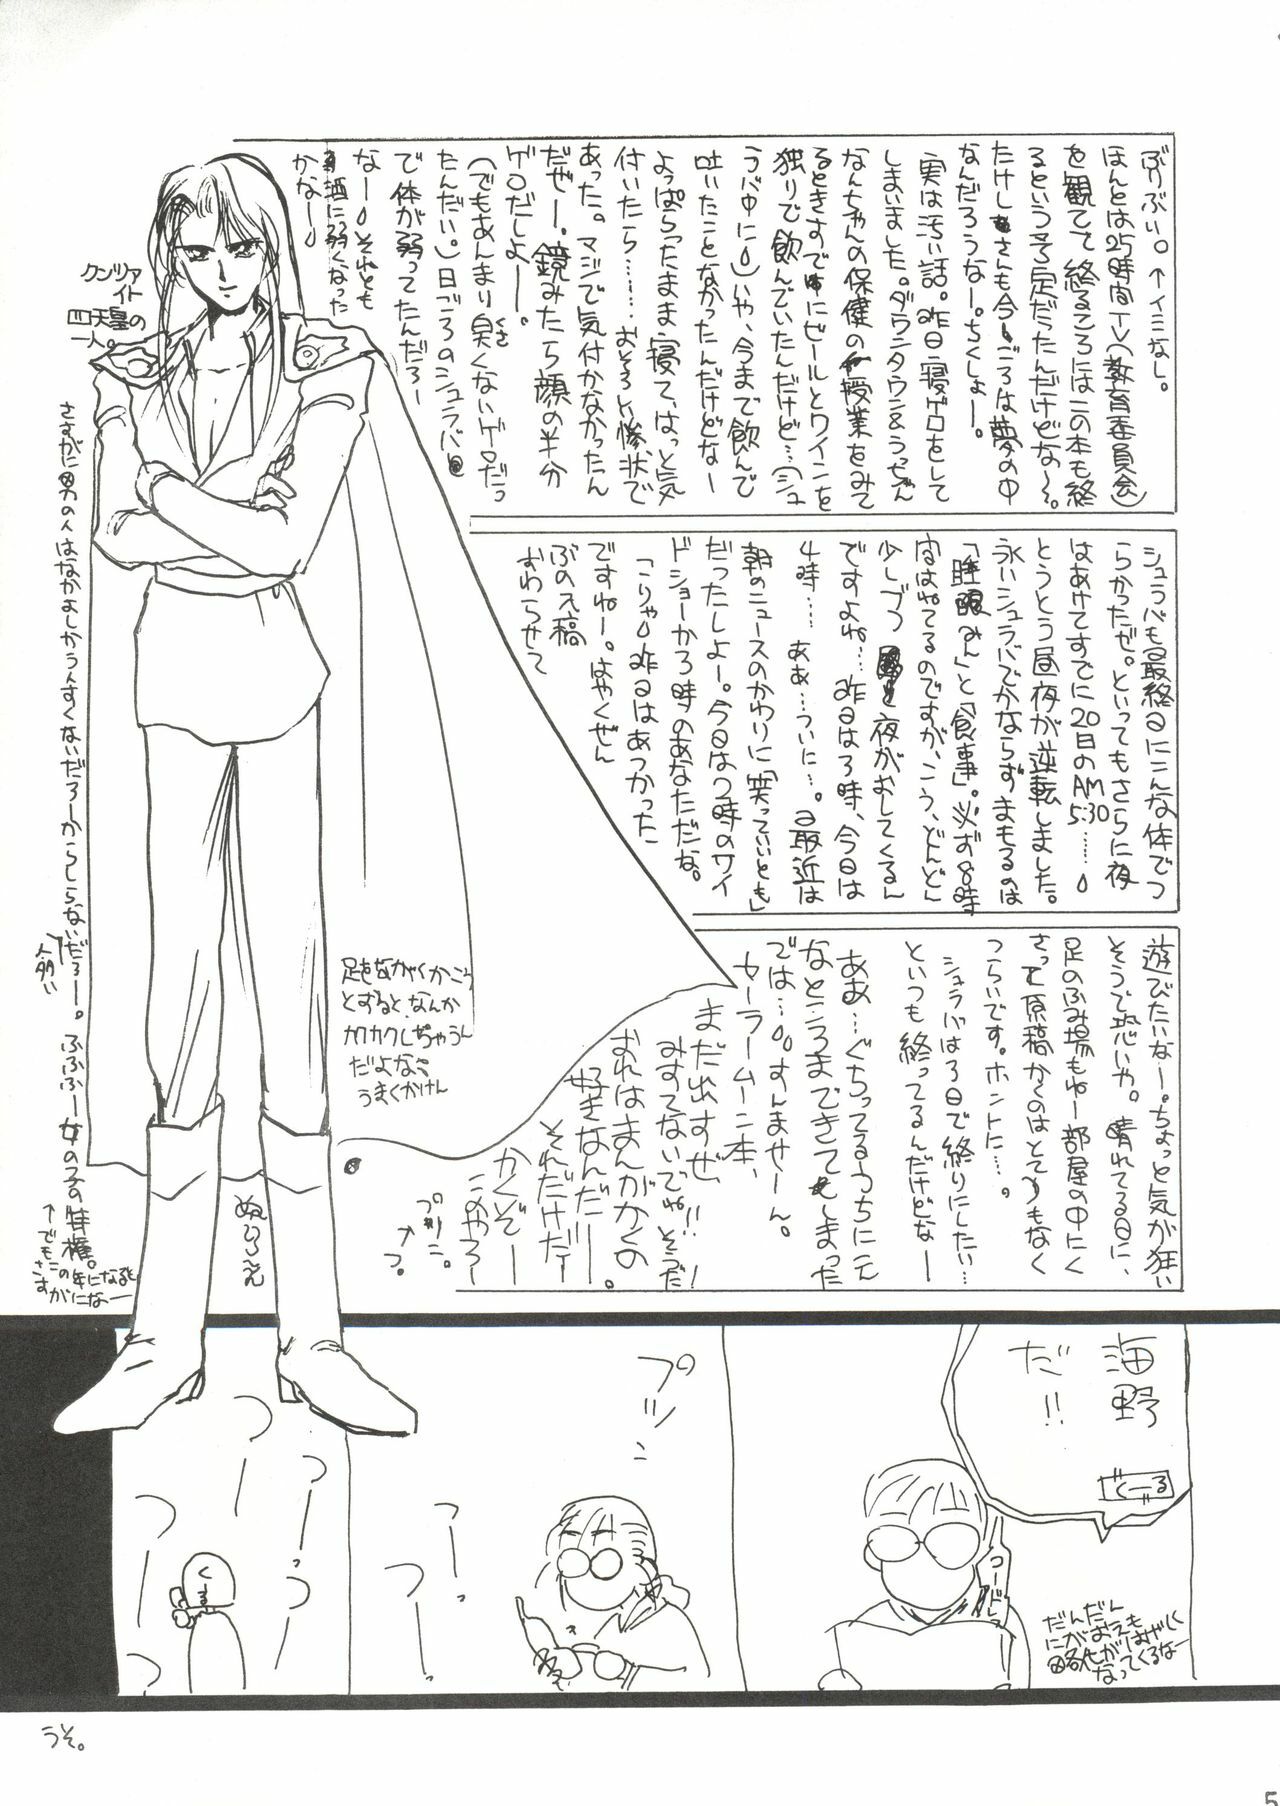 ぶりぶい。↑イミなし。
ほんとは25時間TV(教育委員会)
を観てて終るころにはこの本も終
るという予定だったんだけどな～。
たけしさんも今ごろは夢の中
なんだろうなー。ちくしょー。
実は汚い話。昨日寝ゲロをして
しまいました。ダウンタウン&うっちゃん
なんちゃんの保健の授業をみて
るときすでにビールとワインを
独りで飲んでいたんだけど…(シュ
ラバ中に)いや、今まで飲んで
吐いたことなかったんだけどなー
よっぱらったまま寝て、はっと気
付いたら……おそろしい惨状で
あった。マジで気付かなかったん
だぜー。鏡みたら顔の半分
ゲロだしよー。
(でもあんまり臭くないゲロだっ
たんだい。)日ごろのシュラバ
で体が弱ってたんだろー
なー。それとも
酒に弱くなった
かなー。
シュラバも最終日にこんな体でつ
らかったぜ。といってもさらに夜
はあけてすでに20日のAM5:30……。
とうとう昼夜が逆転しました。
永いシュラバでかならずまもるのは
「睡眠」と「食事」。必ず8時
間はねてるのですが、こう、どんどん
少しづつ夜がおしてくるん
ですよね…昨日は3時、今日は
4時……ああ…ついに…。最近は
朝のニュースのかわりに「笑っていいとも」
だったしよー。今日は2時のワイ
ドショーか3時のあなただな。
「こりゃ。昨日はあつかった
ですねー。はやくぜん
ぶの原稿
おわらせて
遊びたいなー。ちょっと気が狂い
そうで恐いわ。晴れてる日に、
足のふみ場もねー部屋の中にく
さって原稿かくのはとてつもなく
つらいです。ホントに…。
シュラバは3日で終りにしたい…
といつも終ってるんだけどなー
ああ…ぐちってるうちにこん
なところまできてしまった
では…。すんませーん。
セーラームーン本、
まだ出すぜ、
みすてないでね!!そうだ!
おれはまんがかくの
好きなんだー。
それだけだー
かくぞー
このやろー
クンツァ
イト
四天皇の
一人。
さすがに男の人はなかよしかうんすくないだろーからしらないだろー。ふふふー女の子の特権。
人多い
↑でもこの年になると
さすがになー
足をながくかこう
とすると、なんか
カクカクしちゃうん
だよな…
うまくかけん
ぬりろえ
海野
だ!!
ぐーる
だんだん
にがおえも
略化がはげしく
なってくるなー
プツン
つーっ
つーっ
つーっ
つーっ
ぐーる
うそ。
5